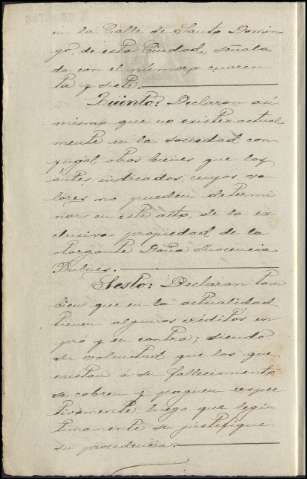 en la Calle de Santo Domin
go de esta Ciudad, señala
da con el número cuaren
ta y siete.
Quinto: Declaran así
mismo que no existen actual
mente en la sociedad con
yugal otros bienes que los
antes indicados, cuyos va
lores no pueden determi
nar en este acto, de la ex
clusiva propiedad de la
otorgante Doña Inocencia
Sesto: Declaran tam
bien que en la actualidad
tienen algunos créditos en
pro y en contra, siendo
su voluntad que los que
existan a su fallecimiento
se cobren y paguen respec
tivamente luego que legíti
mamente se justifique
su procedencia.